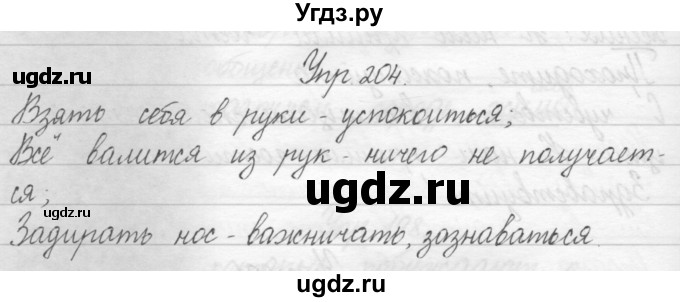 Угдз.ру
Упр. 204.
Взять себя в руки - успокоиться;
Всё валится из рук - ничего не получает-
ся;
Задирать нос - важничать, зазнаваться.
ugdz.ru
ugdz.ru
ugdz.ru
ugdz.ru
ugdz.ru
ugdz.ru